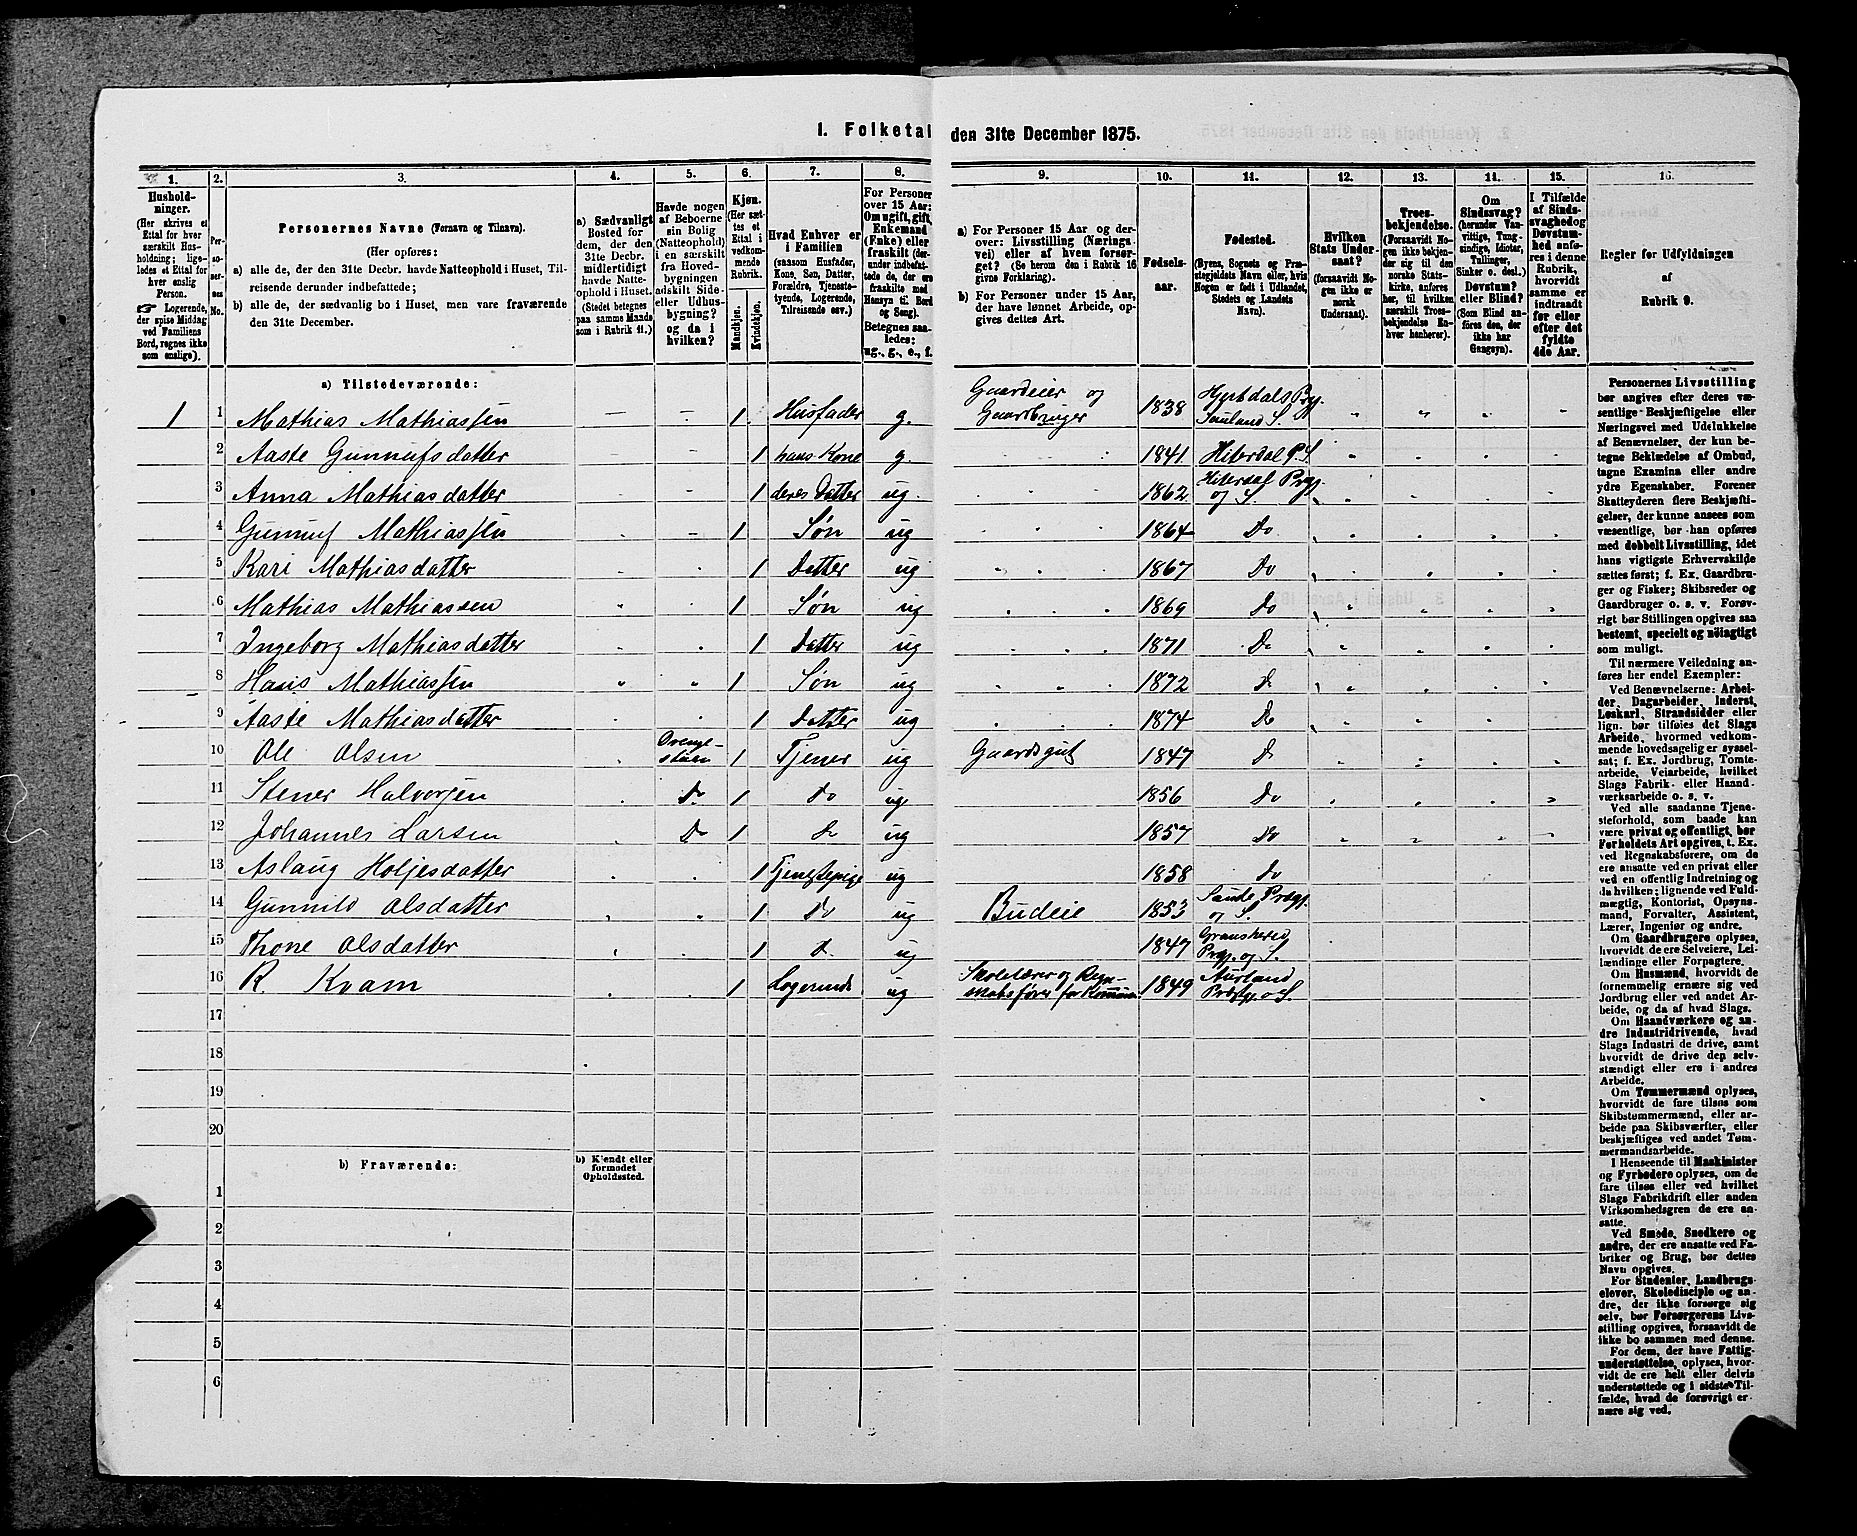 1. Folketal den 31te December 1875.
1. 2. 3. 4. 5. 6. 7. 8. 9. 10. 11. 12. 13. 14. 15. 16.
Hushold-
ninger.
(Her skrives et
Ettal for hver
særskilt Hus-
holdning; lige-
ledes et Ettal for
hver enslig
Person.
☞ Logerende,
der spise Middag
ved Familiens
Bord, regnes ikke
som enslige).
Per-
so-
ner-
nes
No.
Personernes Navne (Fornavn og Tilnavn).
(Her opføres:
a) alle de, der den 31te Decbr. havde Natteophold i Huset, Til-
reisende derunder indbefattede;
b) alle de, der sædvanlig bo i Huset, men vare fraværende
den 31te December.
a) Sædvanligt
Bosted for
dem, der den
31te Decbr.
midlertidigt
havde Natte-
ophold i Huset.
(Stedet betegnes
paa samme Maade
som i Rubrik 11.)
Havde nogen
af Beboerne
sin Bolig
(Natteophold)
i en særskilt
fra Hoved-
bygningen
adskilt Side-
eller Udhus-
bygning?
og da i
hvilken?
Kjøn.
(Her sæt-
tes et
Ettal i
vedkom-
mende
Rubrik.
Mandkjøn.
Kvindekjøn.
Hvad Enhver er
i Familien
(saasom Husfader,
Kone, Søn, Datter,
Forældre, Tjeneste-
tyende, Logerende,
Tilreisende osv.)
For Personer
over 15 Aar:
Om ugift, gift,
Enkemand
(Enke) eller
fraskilt (der-
under indbefat-
tede de, der ere
fraskilte med
Hensyn til Bord
og Seng).
Betegnes saa-
ledes:
ug., g., e., f.
a) For Personer 15 Aar og der-
over: Livsstilling (Nærings-
vei) eller af hvem forsør-
get? (Se herom den i Rubrik 16
givne Forklaring).
b) For Personer under 15 Aar,
der have lønnet Arbeide, op-
gives dettes Art.
Fødsels-
aar.
Fødested.
(Byens, Sognets og Præ-
stegjeldets Navn eller, hvis
Nogen er født i Udlandet,
Stedets og Landets
Navn).
Hvilken
Stats Under-
saat?
(forsaavidt No-
gen ikke er
norsk
Undersaat).
Troes-
bekjendelse.
(Forsaavidt No-
gen ikke bekjen-
der sig til den
norske Stats-
kirke, anføres
her, til hvilken
særskilt Troes-
bekjendelse En-
hver henhører).
Om
Sindssvag?
(herunder Van-
vittige, Tung-
sindige, Idioter,
Tullinger,
Sinker o. desl.)
Døvstum?
eller Blind?
(Som Blind an-
føres den, der
ikke har
Gangsyn).
I Tilfælde
af Sinds-
svaghed og
Døvstum-
hed anfø-
res i denne
Rubrik,
hvorvidt
samme er
indtraadt
før eller
efter det
fyldte
4de Aar.
Regler for Udfyldningen
af
Rubrik 9.
a) Tilstedeværende:
1 1 Mathias Mathiassen — — 1. Husfader g. Gaardeier og Gaardbruger 1838 Hjertdals Prgj. Sauland S.
2 Aaste Gunnufsdatter 1 hans Kone g. 1841. Hiterdal P. S.
3 Anna Mathiasdatter 1 deres Datter ug. 1862. Hiterdal Prgj. og S.
4 Gunnuf Mathiassen 1 Søn ug 1864 Do
5 Kari Mathiasdatter 1 Datter ug 1867 Do
6 Mathias Mathiassen 1 Søn ug 1869 Do
7 Ingeborg Mathiasdatter 1 Datter ug 1871 Do
8 Hans Mathiassen 1 Søn ug 1872 Do
9 Aaste Mathiasdatter 1 Datter ug 1874 Do
10 Ole Olsen Drenge-stuen 1 Tjener ug Gaardsgut 1847 Do
11 Stener Halvorsen Do 1 Do ug 1856 Do
12 Johannes Larsen Do 1 Do ug 1857 Do
13 Aslaug Holjesdatter 1 Tjenestepige ug 1858 do
14 Gunnild Olsdatter 1 Do ug Budeie 1853 Saude Prgj. og S.
15 Thone Olsdatter 1 Do ug 1847 Gransherred Prgj. og S.
16 R. Kvam 1 Logerende ug Skolelærer og Regn-skabsfører for Kommunen 1849 Aurland Præstgj. o S.
17
18
19
20
b) Fraværende:
b) Kjendt eller
formodet
Opholdssted.
1
2
3
4
5
6
Personernes Livsstilling
bør angives efter deres væ-
sentlige Beskjæftigelse eller
Næringsvei med Udelukkelse
af Benævnelser, der kun be-
tegne Beklædelse af Ombud,
tagne Examina eller andre
ydre Egenskaber. Forener
Skatteyderen flere Beskjæfti-
gelser, der kunne ansees som
væsentlige, bør han opføres
med dobbelt Livsstilling, idet
hans vigtigste Erhvervskilde
sættes først; f. Ex. Gaardbru-
ger og Fisker; Skibsreder og
Gaardbruger o. s. v. Forøv-
rigt bør Stillingen opgives saa
bestemt, specielt og nöiagtigt
som muligt.
Til nærmere Veiledning an-
føres her endel Exempler:
Ved Benævnelserne: Arbei-
der, Dagarbeider, Inderst,
Løskarl, Strandsidder eller
lign. bør tilføies det Slags
Arbeide, hvormed vedkom-
mende hovedsagelig er syssel-
sat; f. Ex. Jordbrug, Tomte-
arbeide, Veiarbeide, hvilket
Slags Fabrik- eller Haand-
værksarbeide o. s. v.
Ved alle saadanne Tjene-
steforhold, som baade kan
være privat og offentligt, bør
Forholdets Art opgives, t. Ex.
ved Regnskabsførere, om de
ere ansatte ved en privat eller
ved en offentlig Indretning og
da hvilken; lignende ved Fuld-
mægtig, Kontorist, Opsyns-
mand, Forvalter, Assistent,
Lærer, Ingeniør og andre.
Om Gaardbrugere oplyses,
hvorvidt de ere Selveiere, Lei-
lændinge eller Forpagtere.
Om Husmænd, hvorvidt de
fornemmelig ernære sig ved
Jordbrug eller ved andet Ar-
beide, og da af hvad Slags.
Om Haandværkere og an-
dre Industridrivende, hvad
Slags Industri de drive, samt
hvorvidt de drive den selv-
stændigt eller ere i andres
Arbeide.
Om Tømmermænd oplyses,
hvorvidt de fare tilsøs som
Skibstømmermænd, eller ar-
beide paa Skibsværfter, eller
beskjæftiges ved andet Tøm-
mermandsarbeide.
I Henseende til Maskinister
og Fyrbødere oplyses, om de
fare tilsøs eller ved hvilket
Slags Fabrikdrift eller anden
Virksomhedsgren de ere an-
satte.
Ved Smede, Snedkere og
andre, der ere ansatte ved Fa-
briker og Brug, bør dettes
Navn opgives.
For Studenter, Landbrugs-
elever, Skoledisciple og an-
dre, der ikke forsørge sig
selv, bør Forsørgerens Livs-
stilling opgives, forsaavidt de
ikke bo sammen med denne.
For dem, der have Fattig-
understøttelse, oplyses, hvor-
vidt de ere helt eller delvis
understøttede og i sidste Til-
fælde, hvad de forøvrigt er-
nære sig ved.